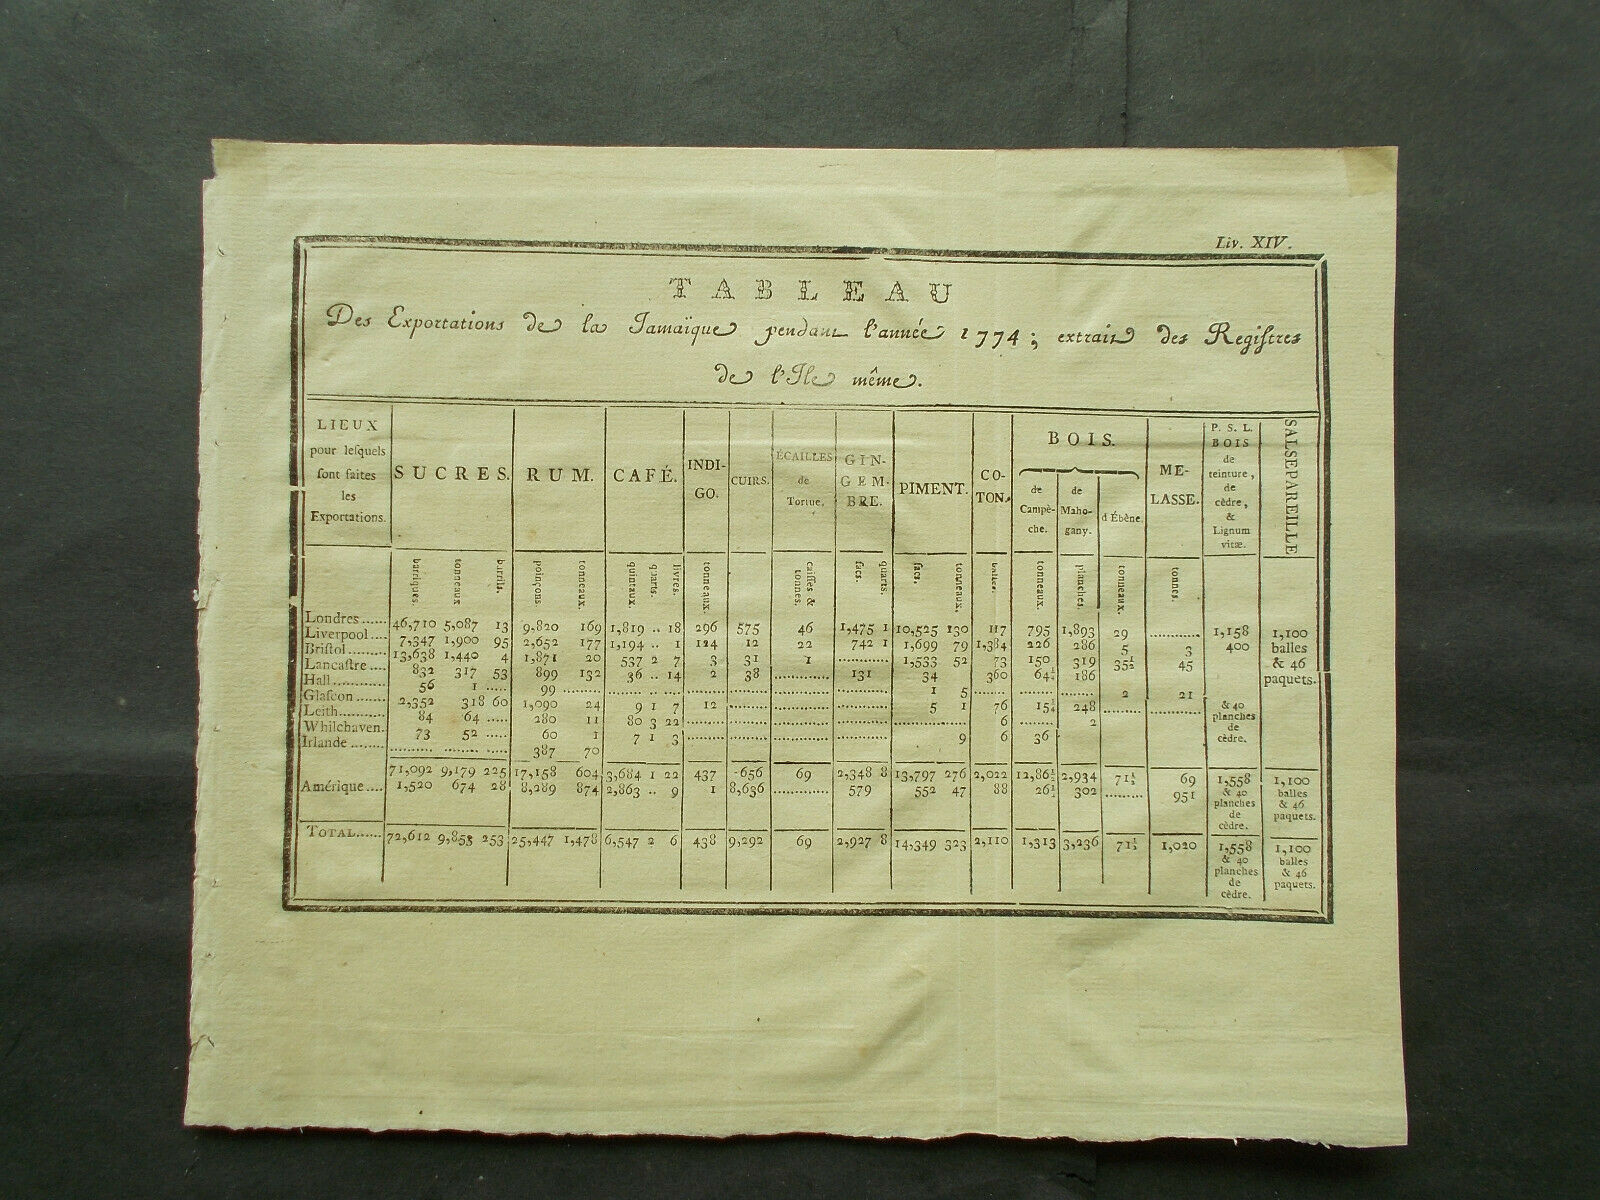 Liv. XIV.
TABLEAU
Des Exportations de la Jamaïque pendant l'année 1774; extrait des Regiſtres
de l'Ile même.
LIEUX pour leſquels ſont faites les Exportations. SUCRES. RUM. CAFÉ. INDI-GO. CUIRS. ÉCAILLES de Tortue. GIN-GEM-BRE. PIMENT. CO-TON. BOIS. de Campê-che. de Maho-gany. d'Ébène. ME-LASSE. P. S. L. BOIS de teinture, de cèdre, & Lignum vitæ. SALSEPAREILLE
barriques. tonneaux barrils. poinçons tonneaux. quintaux quarts. livres. tonneaux. caiſſes & tonnes. ſacs. quarts. ſacs. tonneaux. balles. tonneaux. planches. tonneaux. tonnes.
Londres ...... 46,710 5,087 13 9,820 169 1,819 .. 18 296 575 46 1,475 1 10,525 130 117 795 1,893 29 ............ 1,158 1,100 balles & 46 paquets.
Liverpool .... 7,347 1,900 95 2,652 177 1,194 .. 1 124 12 22 742 1 1,699 79 1,384 226 286 5 3 400
Briſtol ....... 13,638 1,440 4 1,871 20 537 2 7 3 31 1 ........... 1,533 52 73 150 319 35½ 45
Lancaſtre .... 832 317 53 899 132 36 .. 14 2 38 ............ 131 34 360 64¼ 186
Hall ............ 56 1 ..... 99 ............ 1 5 ............ 2 21
Glaſcon ...... 2,352 318 60 1,090 24 9 1 7 12 ............ 5 1 76 15¼ 248 ............ & 40 planches de cèdre.
Leith .......... 84 64 ..... 280 11 80 3 22 ............ 6 ........ 2
Whilchaven. 73 52 ..... 60 1 7 1 3 ............ 9 6 36
Irlande ........ ............ 387 70
71,092 9,179 225 17,158 604 3,684 1 22 437 656 69 2,348 8 13,797 276 2,022 12,86½ 2,934 71½ 69 1,558 & 40 planches de cèdre. 1,100 balles & 46 paquets.
Amérique .... 1,520 674 28 8,289 874 2,863 .. 9 1 8,636 ............ 579 552 47 88 26½ 302 ......... 951
TOTAL ...... 72,612 9,853 253 25,447 1,478 6,547 2 6 438 9,292 69 2,927 8 14,349 323 2,110 1,313 3,236 71½ 1,020 1,558 & 40 planches de cèdre. 1,100 balles & 46 paquets.